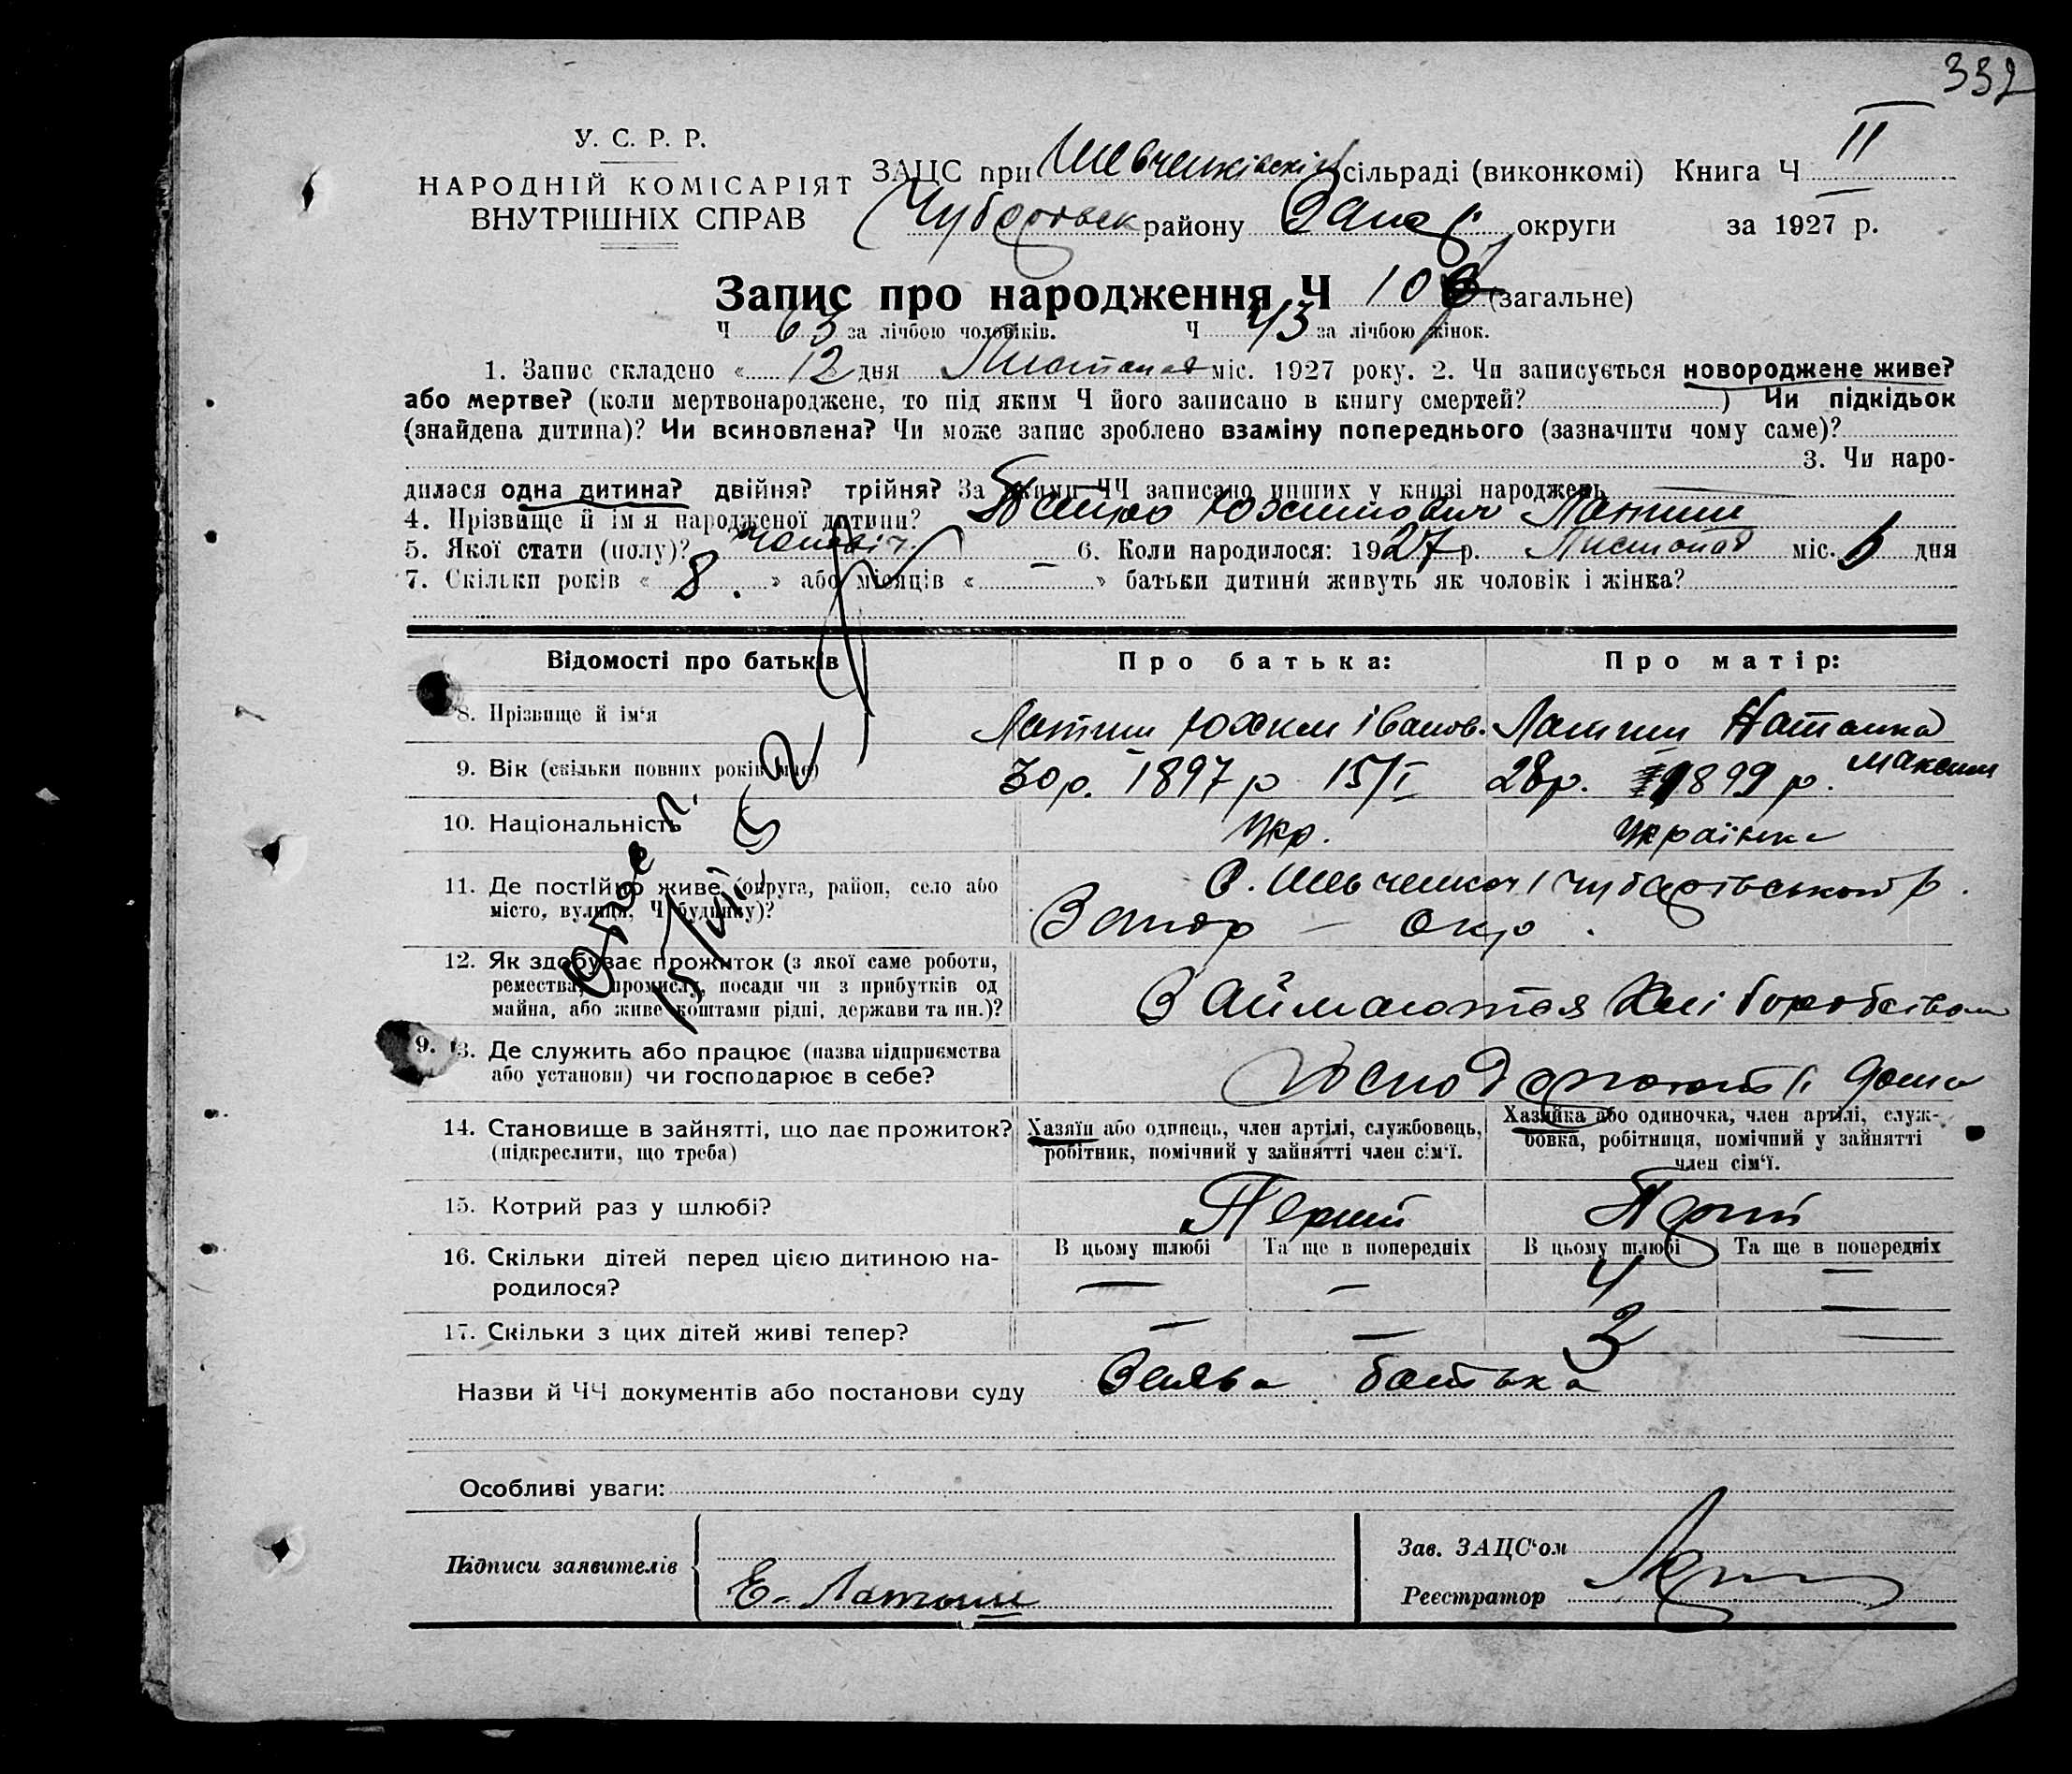 332
У. С. Р. Р.
НАРОДНІЙ КОМІСАРІЯТ
ВНУТРІШНІХ СПРАВ
ЗАЦС при Шевченківскій сільраді (виконкомі) Книга Ч II
Чубарівськ району Запор. округи за 1927 р.
Запис про народження Ч 106 (загальне)
Ч 63 за лічбою чоловіків. Ч 43 за лічбою жінок.
1. Запис складено « 12 » дня Листопад міс. 1927 року. 2. Чи записується новороджене живе?
або мертве? (коли мертвонароджене, то під яким Ч його записано в книгу смертей? ) Чи підкідьок
(знайдена дитина)? Чи всиновлена? Чи може запис зроблено взаміну попереднього (зазначити чому саме)?
3. Чи наро-
дилася одна дитина? двійня? трійня? За якими ЧЧ записано инших у книзі народжень —
4. Прізвище й ім'я народженої дитини? Петро Юхимович Латиш
5. Якої стати (полу)? чоловіч. 6. Коли народилося: 1927 р. Листопад міс. 6 дня
7. Скільки років « 8. » або місяців « — » батьки дитини живуть як чоловік і жінка?
Відомості про батьків
Про батька:
Про матір:
8. Прізвище й ім'я
Латиш Юхим Іванов.
Латиш Наталка
Максим
9. Вік (скільки повних років має)
30 р. 1897 р 15/I
28 р. 1899 р.
10. Національність
Укр.
Українка
11. Де постійно живе (округа, район, село або
місто, вулиця, Ч будинку)?
С. Шевченкого Чубарівського р.
Запор – окр.
12. Як здобуває прожиток (з якої саме роботи,
ремества, промислу, посади чи з прибутків од
майна, або живе коштами рідні, держави та ин.)?
Займаються Хліборобством
9. 13. Де служить або працює (назва підприємства
або установи) чи господарює в себе?
Господарюють дома
14. Становище в зайнятті, що дає прожиток?
(підкреслити, що треба)
Хазяїн або одинець, член артілі, службовець,
робітник, помічний у зайнятті член сім'ї.
Хазяйка або одиночка, член артілі, служ-
бовка, робітниця, помічний у зайнятті
член сім'ї.
15. Котрий раз у шлюбі?
Перший
16. Скільки дітей перед цією дитиною на-
родилося?
В цьому шлюбі
Та ще в попередніх
В цьому шлюбі
Та ще в попередніх
— — 4 —
17. Скільки з цих дітей живі тепер?
— — 2 —
Назви й ЧЧ документів або постанови суду
Заява батька
Особливі уваги:
Підписи заявителів
Е. Латыш
Зав. ЗАЦС'ом
Реєстратор